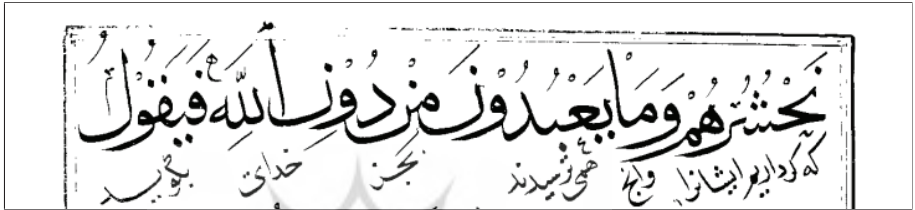 نَحْشُرُهُمْ وَمَا يَعْبُدُونَ مِنْ دُونِ اللَّهِ فَيَقُولُ
که گرد آریم ایشانرا وانچ همی پرستیدند بجز خدای بگوید